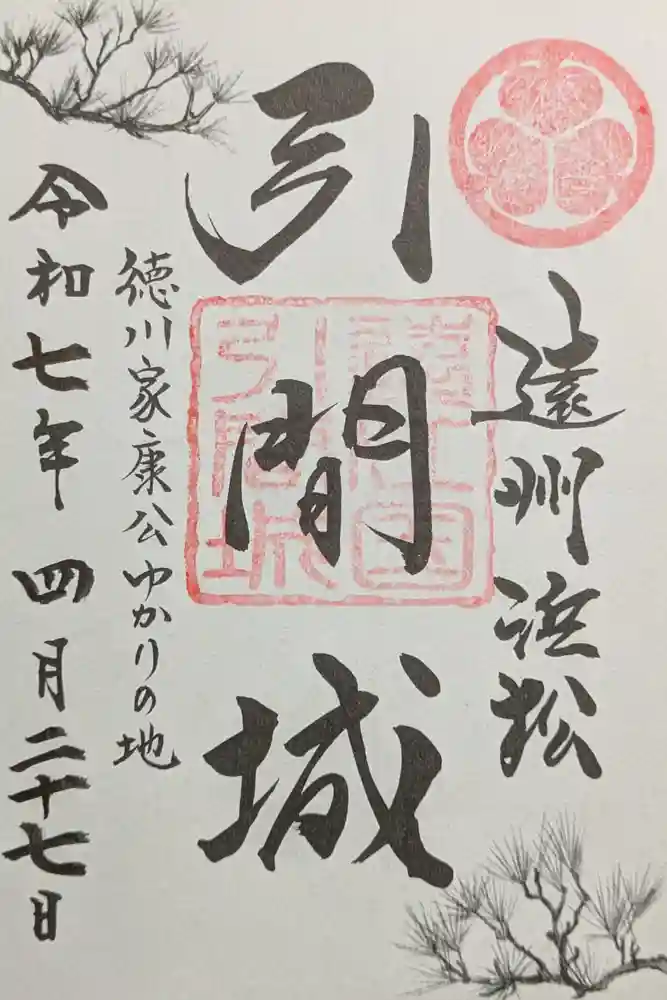 遠州浜松
引間城
徳川家康公ゆかりの地
令和七年 四月二十七日